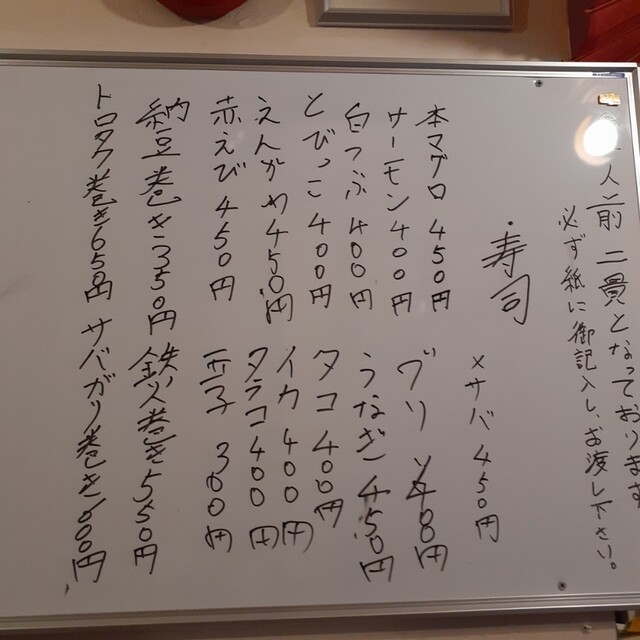 人前 二貫となっております
必ず紙に御記入し、お渡し下さい。
寿司
本マグロ 450円
サーモン400円
白つぶ400円
とびっこ400円
えんがわ450円
赤えび450円
納豆巻き350円
トロタク巻き650円
〆サバ 450円
ブリ 400円
うなぎ 450円
タコ 400円
イカ 400円
タラコ400円
玉子 300円
鉄火巻き550円
サバガリ巻き